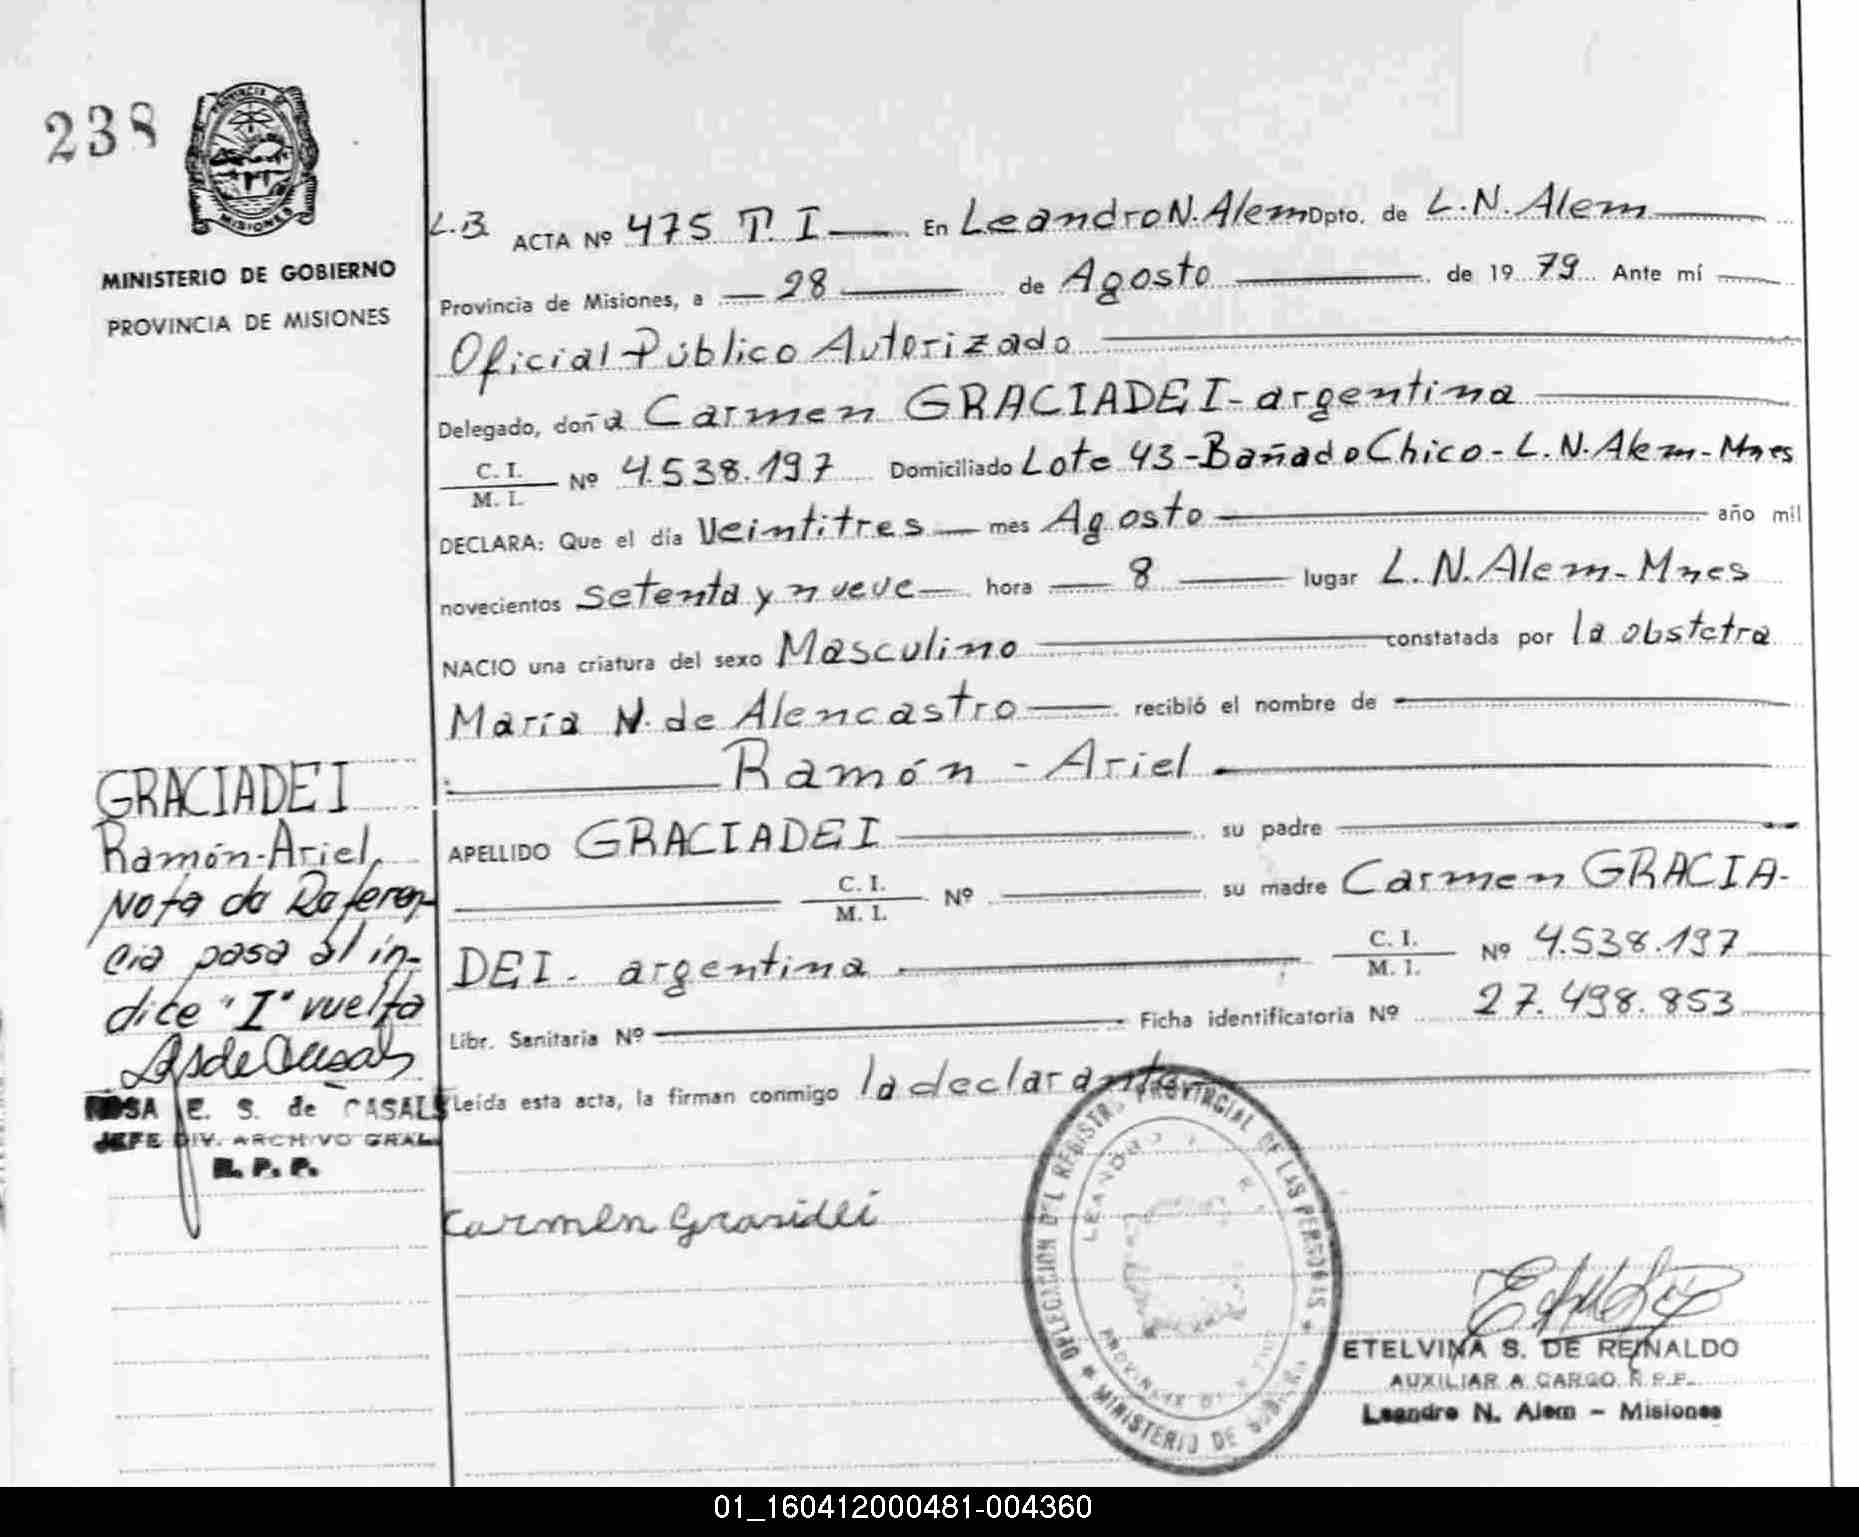 238
PROVINCIA DE
MISIONES
MINISTERIO DE GOBIERNO
PROVINCIA DE MISIONES
L.B. ACTA Nº 475 T. I En Leandro N. Alem Dpto. de L. N. Alem
Provincia de Misiones, a 28 de Agosto de 19 79 Ante mí
Oficial Público Autorizado
Delegado, doña Carmen GRACIADEI - argentina
C. I.
M. I. Nº 4.538.197 Domiciliado Lote 43 - Bañado Chico - L. N. Alem - Mnes
DECLARA: Que el día Veintitres mes Agosto año mil
novecientos setenta y nueve hora 8 lugar L. N. Alem - Mnes
NACIO una criatura del sexo Masculino constatada por la obstetra
María N. de Alencastro recibió el nombre de
Ramón - Ariel
APELLIDO GRACIADEI su padre
C. I.
M. I. Nº su madre Carmen GRACIA-
DEI - argentina C. I.
M. I. Nº 4.538.197
Libr. Sanitaria Nº Ficha identificatoria Nº 27.498.853
Leída esta acta, la firman conmigo la declarante
GRACIADEI
Ramón-Ariel,
Nota de Referen-
cia pasa al in-
dice "I" vuelta
ROSA E. S. de CASALS
JEFE DIV. ARCHIVO GRAL.
R. P. P.
Carmen Grasidei
DELEGACION DEL REGISTRO PROVINCIAL DE LAS PERSONAS
MINISTERIO DE
ETELVINA S. DE REINALDO
AUXILIAR A CARGO R.P.P.
Leandro N. Alem - Misiones
01_160412000481-004360